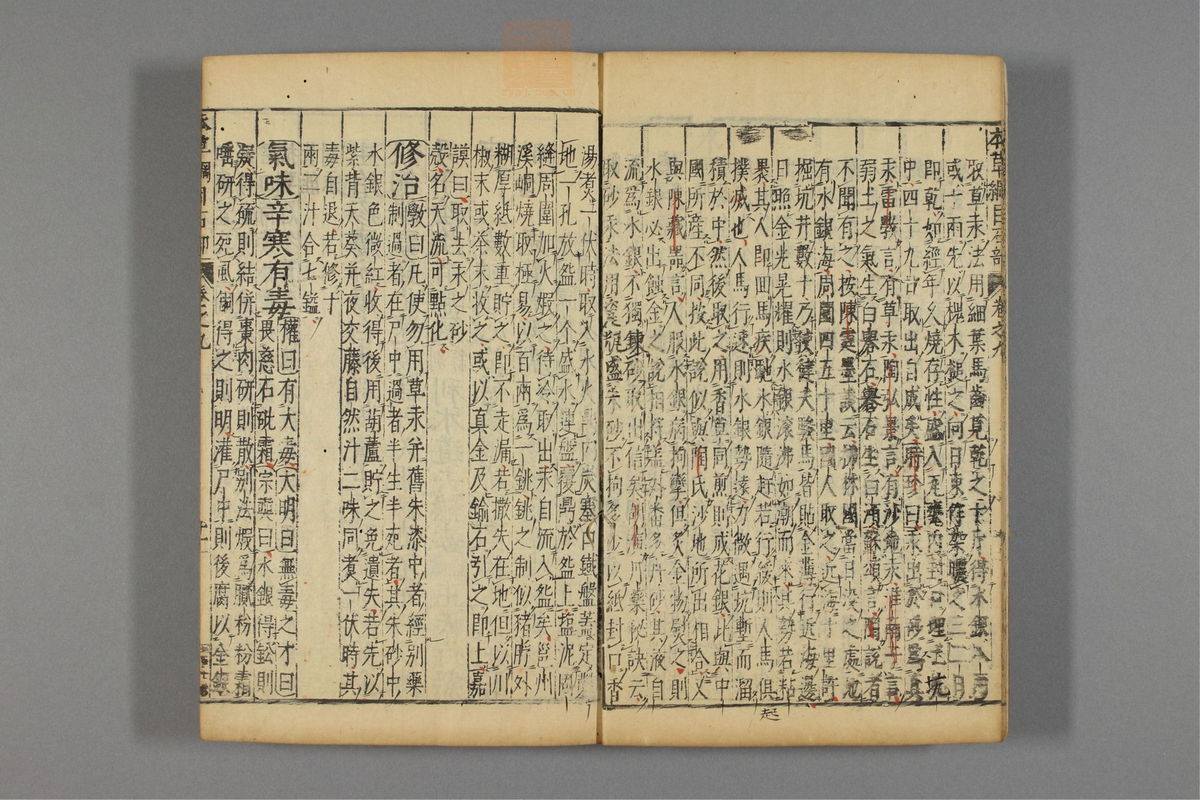 本草綱目石部 卷之九
取草汞法用細葉馬齒莧乾之十斤得水銀八兩
或十兩先以槐木槌之向日東作架曬之三二日
即乾如經年久燒存性盛入瓦甕內封口埋土坑
中四十九日取出自成矣時珍曰汞出於丹砂爲真
汞雷斆言有草汞陶弘景言有沙地汞淮南子言
弱土之氣生白礜石礜石生白澒蘇頌言陶說者
不聞有之按陳霆墨談云拂林國當日沒之處地
有水銀海周圍四五十里國人取之近海十里許
掘坑井數十乃使健夫駿馬皆貼金箔行近海邊
日照金光晃耀則水銀滾沸如潮而來其勢若粘
裹其人即回馬疾馳水銀隨趕若行緩則人馬俱
撲滅也人馬行速則水銀勢遠力微遇坑塹而溜
積於中然後取之用香草同煎則成花銀此與中
國所產不同按此說似與陶氏沙地所出相合又
與陳藏器言人服水銀病拘攣但炙金物熨之則
水銀必出蝕金之說相符蓋外番多丹砂其液自
流爲水銀不獨鍊砂取出信矣胡演丹藥秘訣云
取砂汞法用瓷瓶盛朱砂不拘多少以紙封口香
起
湯煮一伏時取入水火鼎內炭塞口鐵盤蓋定
地一孔放盌一个盛水連盤覆鼎於盌上鹽泥固
縫周圍加火煅之待冷取出汞自流入盌矣邕州
溪峒燒取極易以百兩爲一銚銚之制似猪脬外
糊厚紙數重貯之即不走漏若撒失在地但以川
椒末或茶末收之或以真金及鍮石引之即上嘉
謨曰取去汞之砂
殼名天流可點化
修治斆曰凡使勿用草汞并舊朱漆中者經別藥
制過者在尸中過者半生半死者其朱砂中
水銀色微紅收得後用葫蘆貯之免遺失若先以
紫背天葵并夜交藤自然汁二味同煮一伏時其
毒自退若修十
兩二汁合七鎰
氣味辛寒有毒權曰有大毒大明曰無毒之才曰
畏慈石砒霜宗奭曰水銀得鉛則
凝得硫則結併棗肉研則散別法煅爲膩粉粉霜
唾研之死虱銅得之則明灌尸中則後腐以金銀
本草綱目石部 卷之九